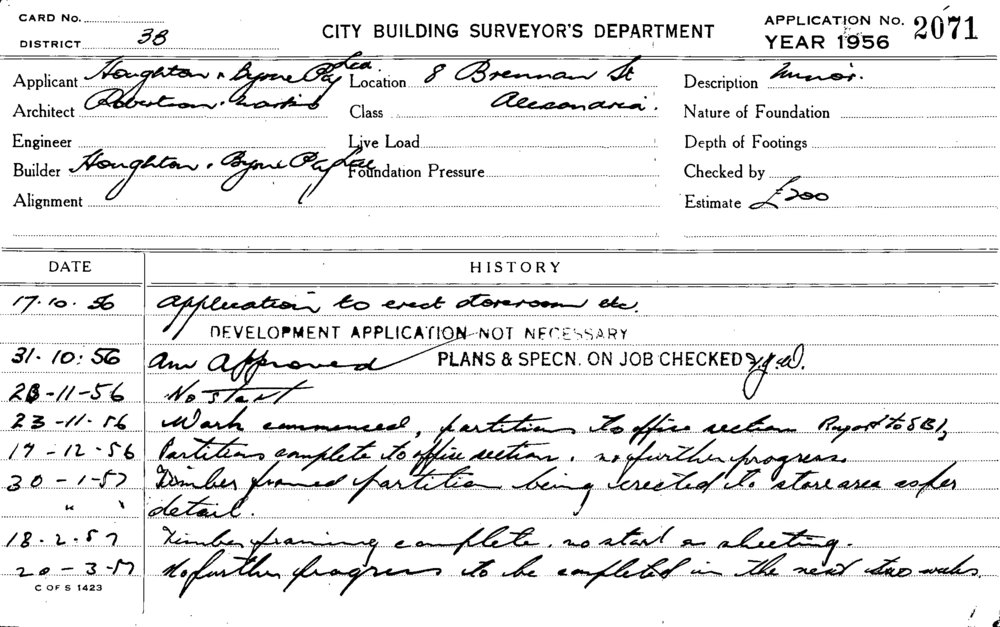 CARD No.
DISTRICT 3B
CITY BUILDING SURVEYOR'S DEPARTMENT
APPLICATION No. 2071
YEAR 1956
Applicant Houghton & Byrne Pty Ltd.
Location 8 Brennan St
Description Minor.
Architect Robertson & Marks
Class Alexandria.
Nature of Foundation
Engineer
Live Load
Depth of Footings
Builder Houghton & Byrne Pty Ltd
Foundation Pressure
Checked by
Alignment
Estimate £200
DATE HISTORY
17.10.56 Application to erect storeroom etc.
DEVELOPMENT APPLICATION NOT NECESSARY
31.10:56 Approved PLANS & SPECN. ON JOB CHECKED
-11-56 No start
23-11-56 Work commenced, partitions to office section Report to
17-12-56 Partitions complete to office section. no further progress
30-1-57 Timber framed partition being erected to store area as per
" " detail.
18.2.57 Timber framing complete. no start on sheeting.
20-3-57 No further progress to be completed in the next two weeks.
C OF S 1423